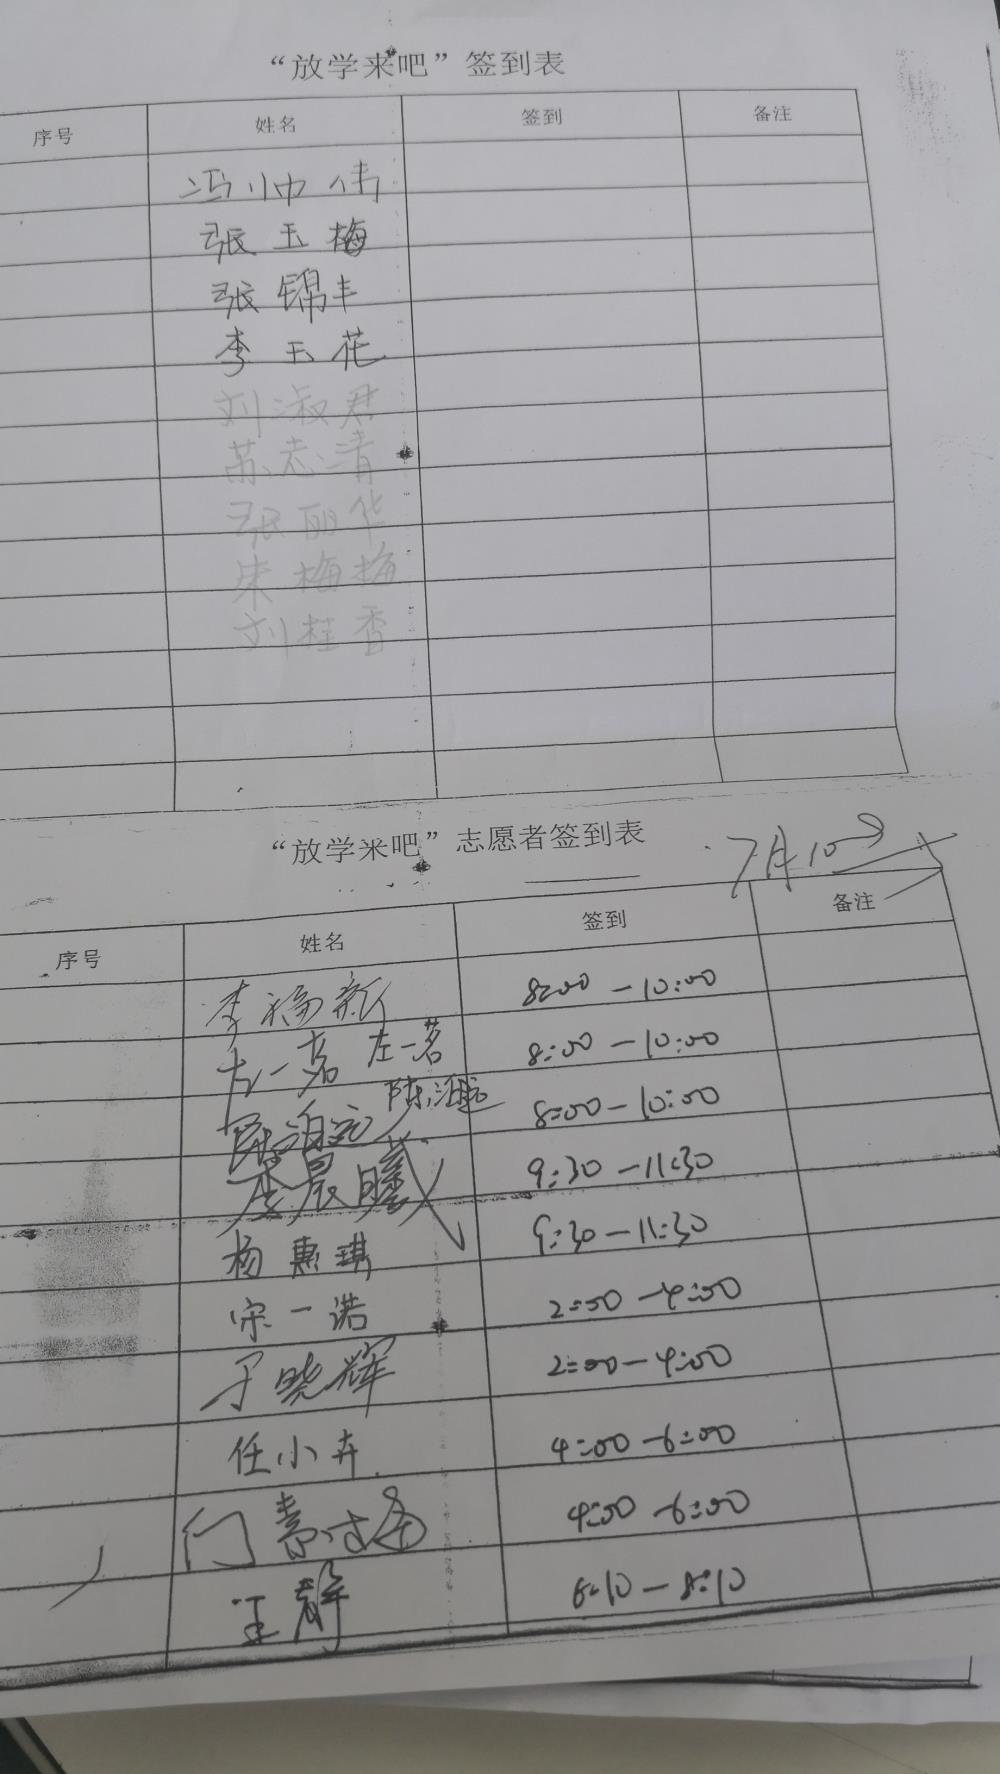 “放学来吧”签到表
序号 姓名 签到 备注
冯帅伟
张玉梅
张锦丰
李玉花
刘淑君
苏志清
张丽华
朱梅梅
刘桂香
“放学来吧”志愿者签到表 7月10日
序号 姓名 签到 备注
李福新 8:00-10:00
左一茗 左一茗 8:00-10:00
陈泊远 陈泊远 8:00-10:00
李晨曦 9:30-11:30
杨惠琪 9:30-11:30
宋一诺 2:00-4:00
于晓辉 2:00-4:00
任小卉 4:00-6:00
门 4:00-6:00
王静 6:10-8:10